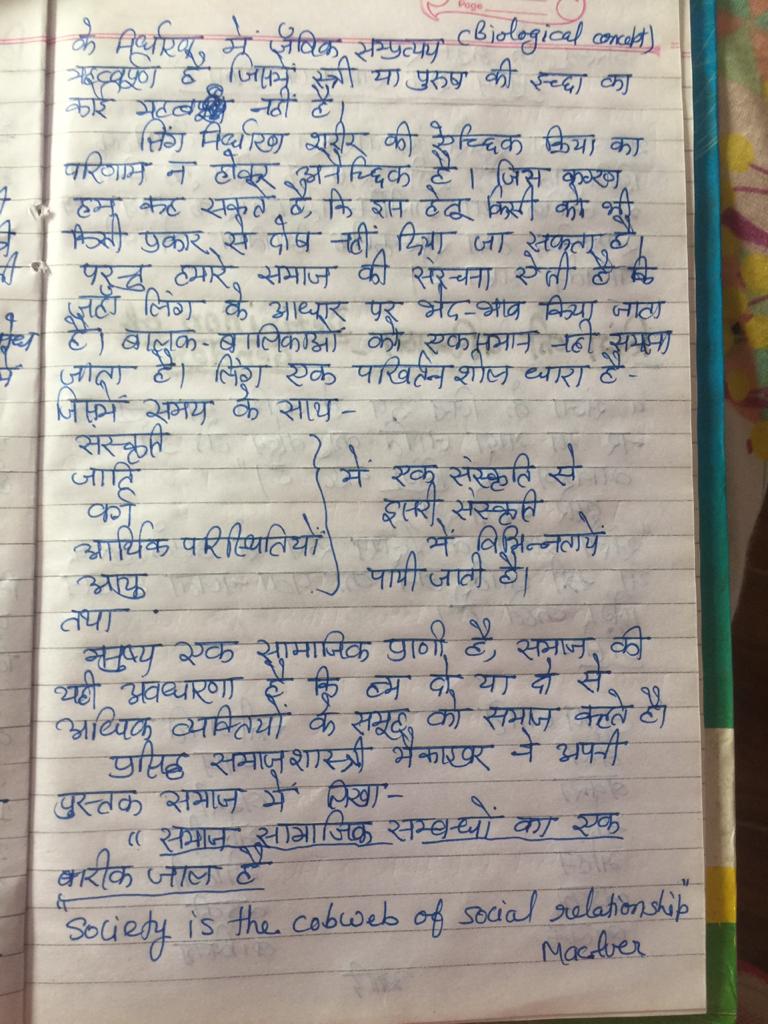 Page
के निर्धारण में जैविक सम्प्रत्यय (Biological concept)
महत्वपूर्ण है जिसमें स्त्री या पुरुष की इच्छा का
कोई महत्व नहीं है।
लिंग निर्धारण शरीर की ऐच्छिक क्रिया का
परिणाम न होकर अनैच्छिक है। जिस कारण
हम कह सकते है, कि इस हेतु किसी को भी
किसी प्रकार से दोष नहीं दिया जा सकता है।
परन्तु हमारे समाज की संरचना ऐसी है कि
जहाँ लिंग के आधार पर भेद-भाव किया जाता
है। बालक-बालिकाओं को एकसमान नही समझा
जाता है। लिंग एक परिवर्तनशील धारा है-
जिसमें समय के साथ-
संस्कृति
जाति में एक संस्कृति से
वर्ग दूसरी संस्कृति
आर्थिक परिस्थितियों में विभिन्नतायें
आयु पायी जाती है।
तथा
मनुष्य एक सामाजिक प्राणी है, समाज की
यही अवधारणा है कि हम दो या दो से
अधिक व्यक्तियों के समूह को समाज कहते है।
प्रसिद्ध समाजशास्त्री मैकाइवर ने अपनी
पुस्तक समाज में लिखा-
“ समाज सामाजिक सम्बन्धों का एक
बारीक जाल है
"Society is the cobweb of social relationship"
MacIver